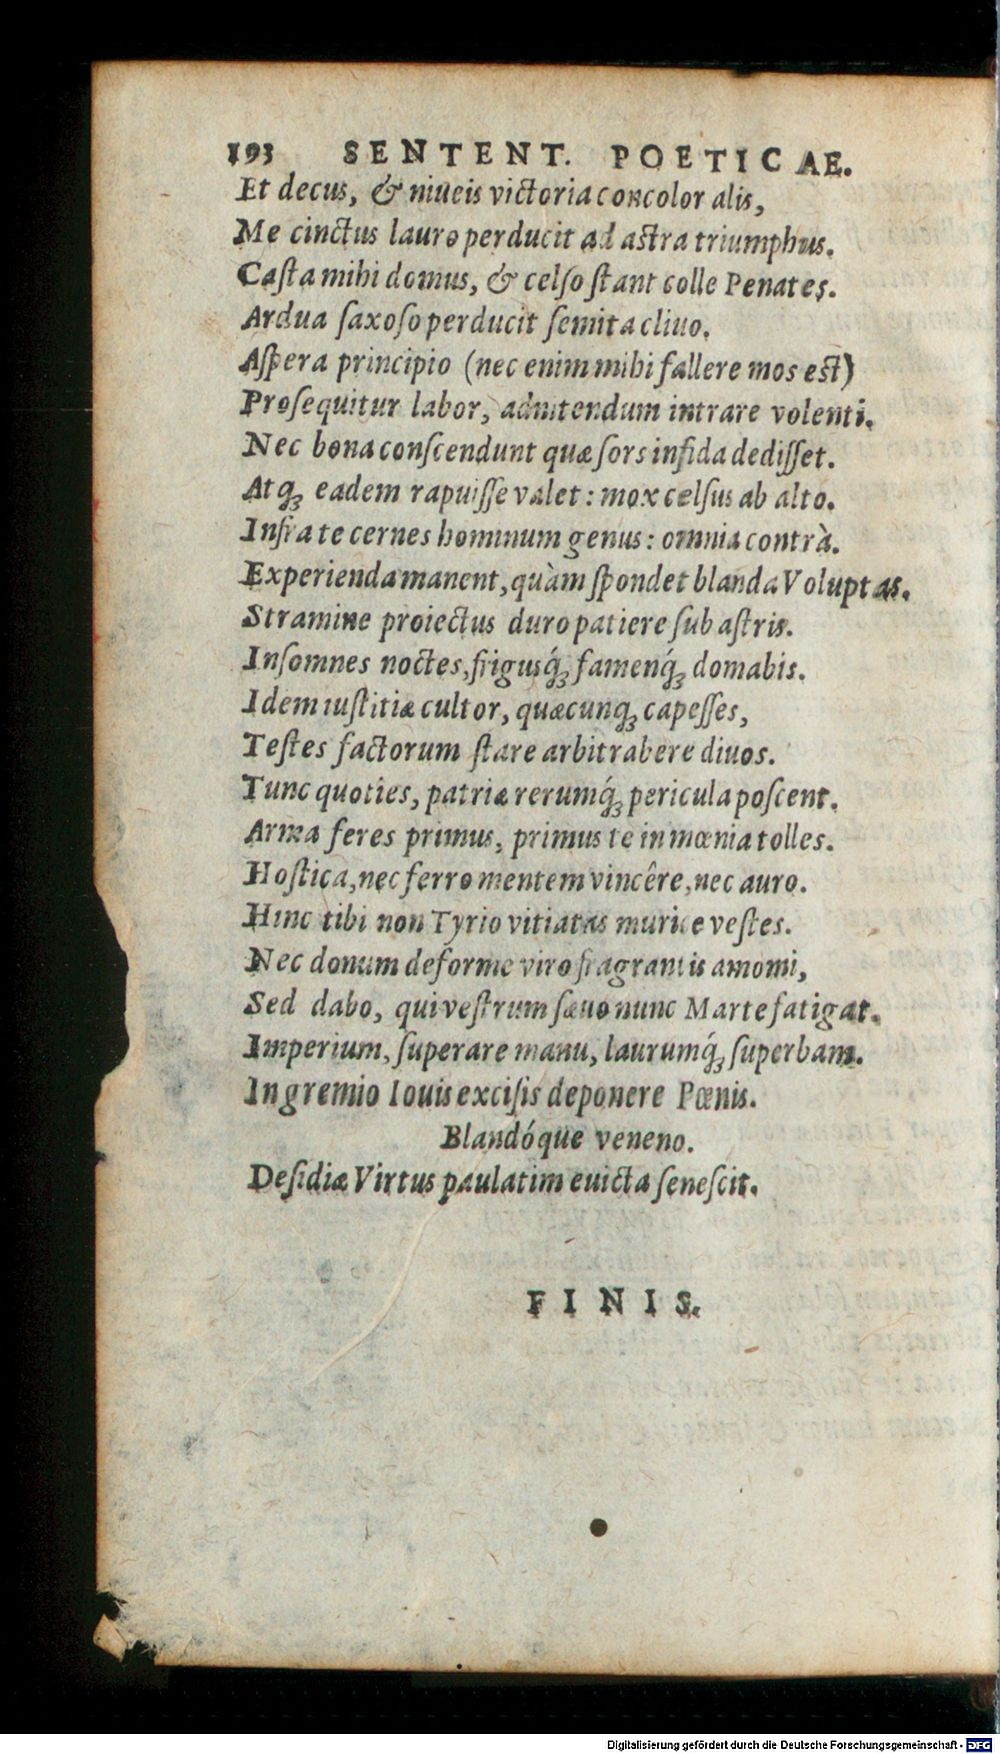 193 SENTENT. POETICAE.
Et decus, & niueis victoria concolor alis,
Me cinctus lauro perducit ad astra triumphus.
Casta mihi domus, & celso stant colle Penates.
Ardua saxoso perducit semita cliuo.
Aspera principio (nec enim mihi fallere mos est)
Prosequitur labor, adnitendum intrare volenti.
Nec bona conscendunt quæ sors infida dedisset.
Atq; eadem rapuisse valet: mox celsus ab alto.
Infra te cernes hominum genus: omnia contrà.
Experienda manent, quàm spondet blanda Voluptas.
Stramine proiectus duro patiere sub astris.
Insomnes noctes, frigusq́; famenq́; domabis.
Idem iustitiæ cultor, quæcunq; capesses,
Testes factorum stare arbitrabere diuos.
Tunc quoties, patriæ rerumq́; pericula poscent.
Arma feres primus, primus te in mœnia tolles.
Hostica, nec ferro mentem vincêre, nec auro.
Hinc tibi non Tyrio vitiatas murice vestes.
Nec donum deforme viro fragrantis amomi,
Sed dabo, qui vestrum sæuo nunc Marte fatigat.
Imperium, superare manu, laurumq́; superbam.
In gremio Iouis excisis deponere Pœnis.
Blandóque veneno.
Desidiæ Virtus paulatim euicta senescit.
FINIS.
Digitalisierung gefördert durch die Deutsche Forschungsgemeinschaft - DFG